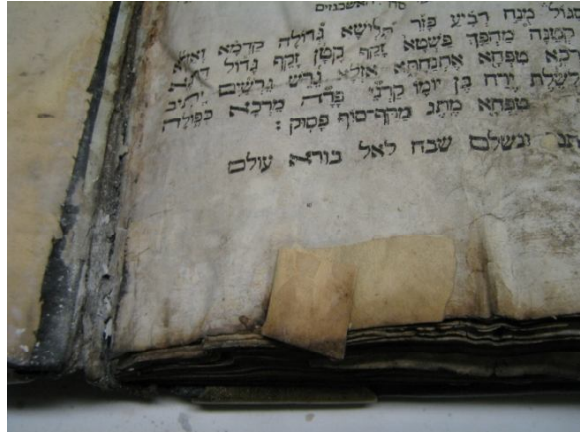 האשכנזים
סגול מנח רביע פזר תלישא גדולה קדמא
קטנה מהפך פשטא זקף קטן זקף גדול
טפחא אתנחתא אזלא גרש גרשים יתיב
ירח בן יומו קרני פרה מרכא כפולה
טפחא מתג מקף-סוף פסוק :
ונשלם שבח לאל בורא עולם